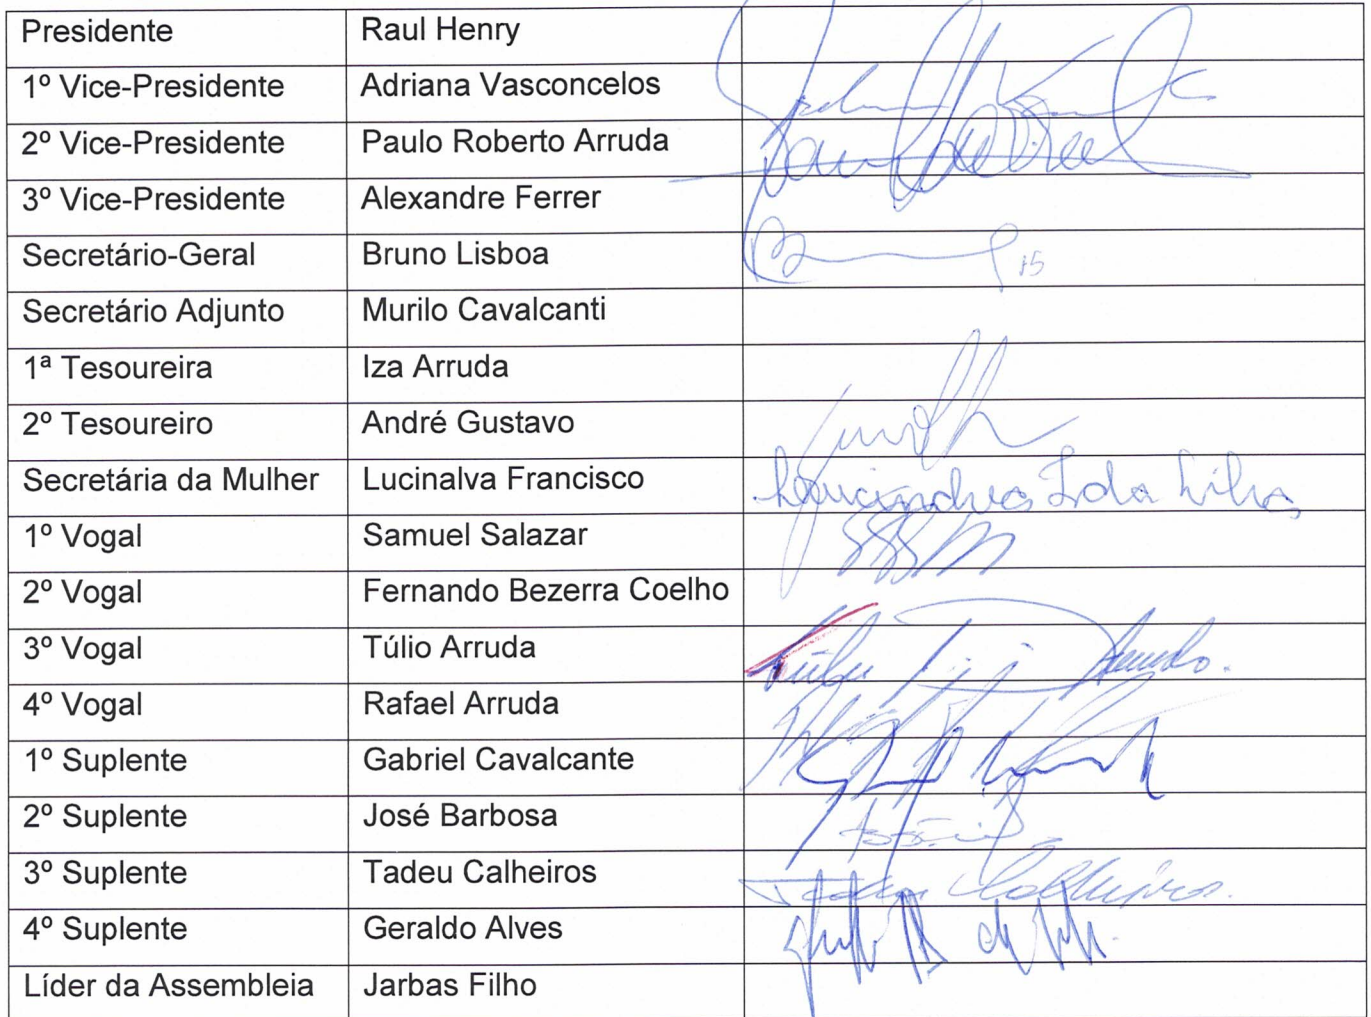 Presidente Raul Henry
1º Vice-Presidente Adriana Vasconcelos
2º Vice-Presidente Paulo Roberto Arruda
3º Vice-Presidente Alexandre Ferrer
Secretário-Geral Bruno Lisboa 15
Secretário Adjunto Murilo Cavalcanti
1ª Tesoureira Iza Arruda
2º Tesoureiro André Gustavo
Secretária da Mulher Lucinalva Francisco
1º Vogal Samuel Salazar
2º Vogal Fernando Bezerra Coelho
3º Vogal Túlio Arruda
4º Vogal Rafael Arruda
1º Suplente Gabriel Cavalcante
2º Suplente José Barbosa
3º Suplente Tadeu Calheiros Tadeu Calheiros.
4º Suplente Geraldo Alves
Líder da Assembleia Jarbas Filho